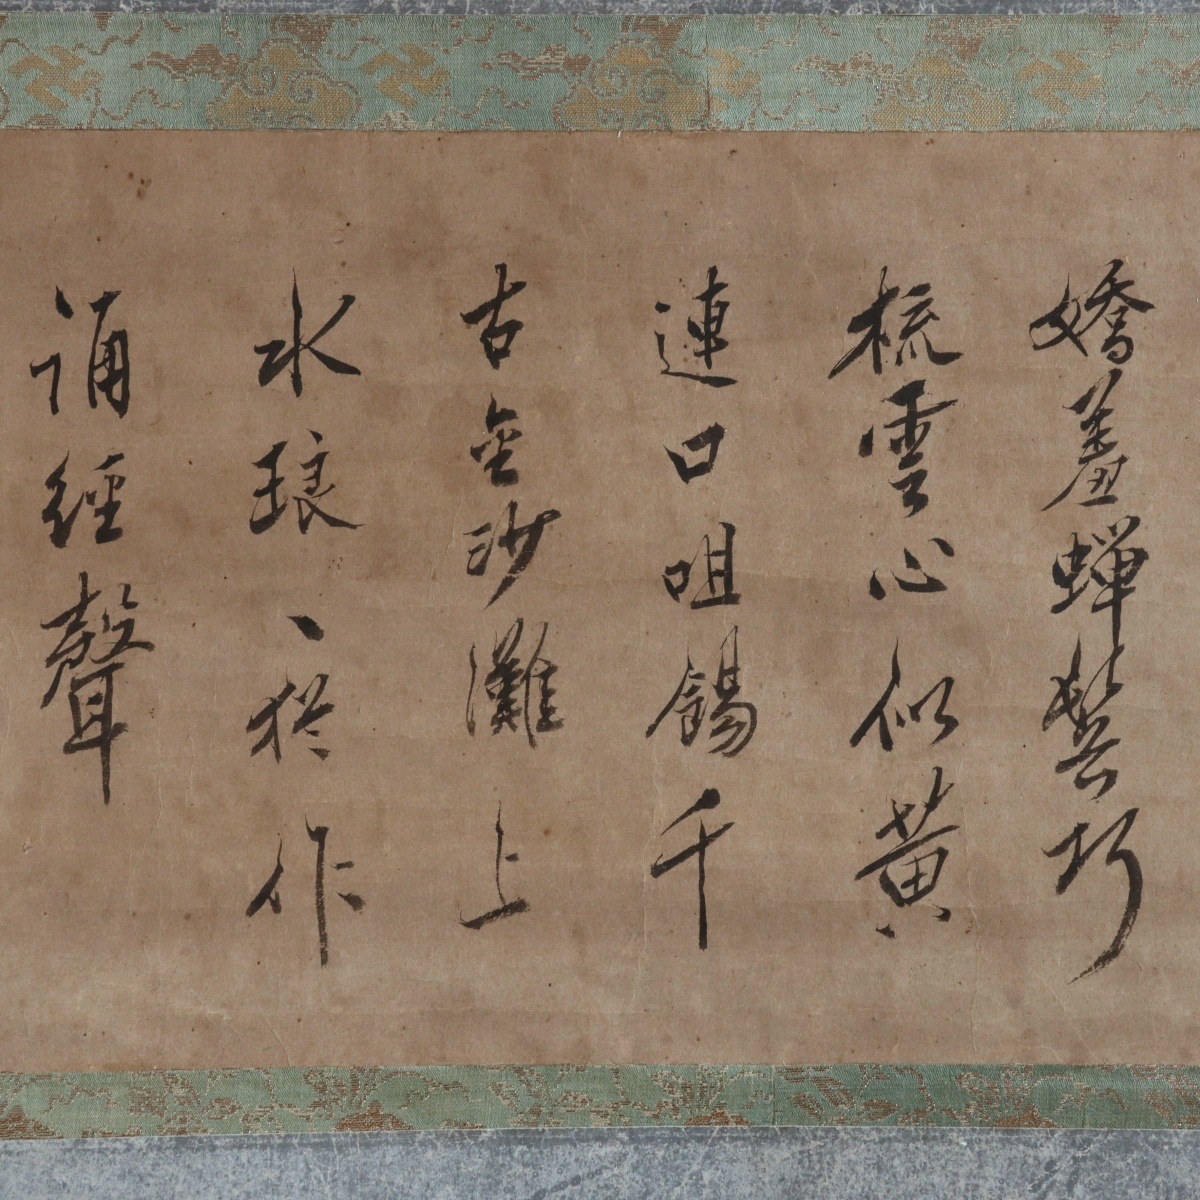 嬌羞蟬鬢巧
梳雲心似黃
連口咀錫千
古金沙灘上
水琅、猶作
誦經聲